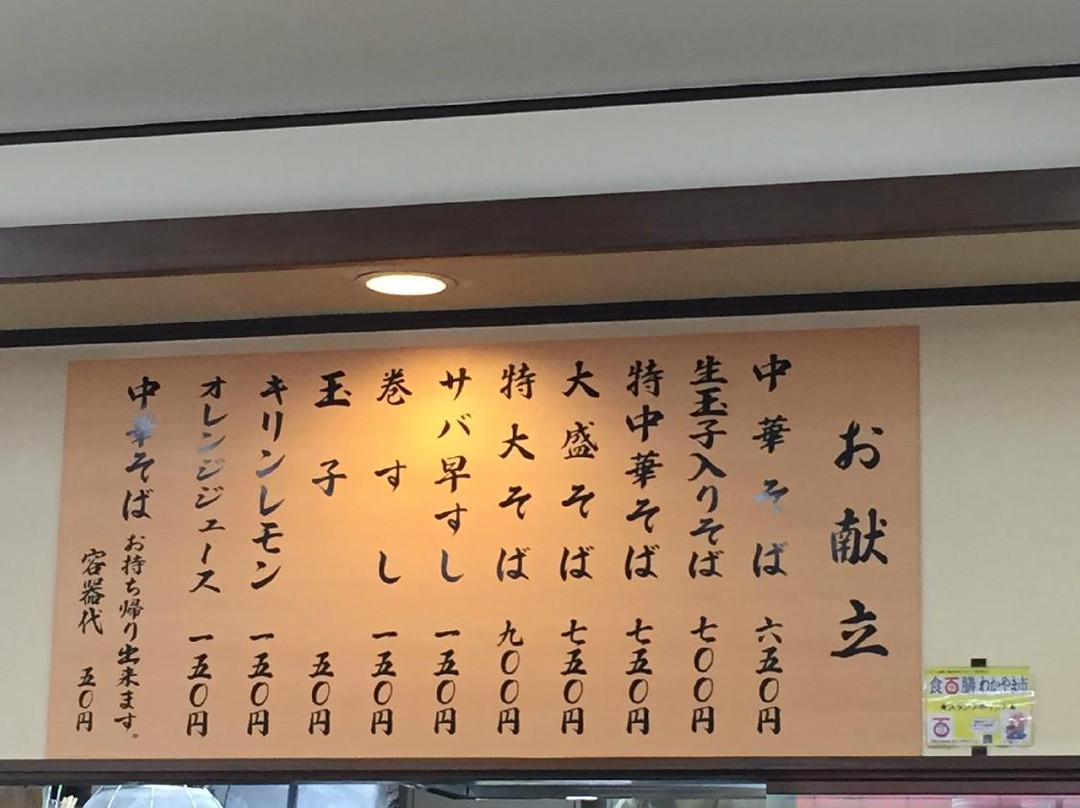 お献立
中華そば 六五〇円
生玉子入りそば 七〇〇円
特中華そば 七五〇円
大盛そば 七五〇円
特大そば 九〇〇円
サバ早すし 一五〇円
巻すし 一五〇円
玉子 五〇円
キリンレモン 一五〇円
オレンジジュース 一五〇円
中華そばお持ち帰り出来ます。
容器代 五〇円
食百膳わかやま市
★スタンプポイント★